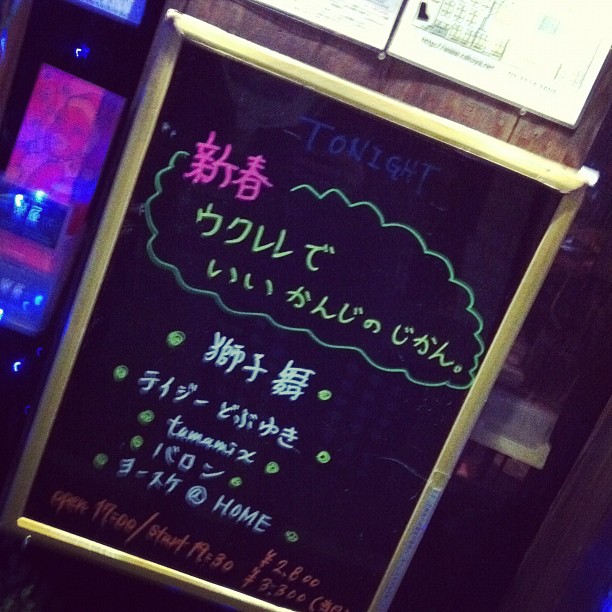 TONIGHT
新春
ウクレレで
いいかんじのじかん。
獅子舞
テイジー どぶゆき
tamamix
バロン
ヨースケ@HOME
open 17:00/start 17:30
¥2,800
¥3,300